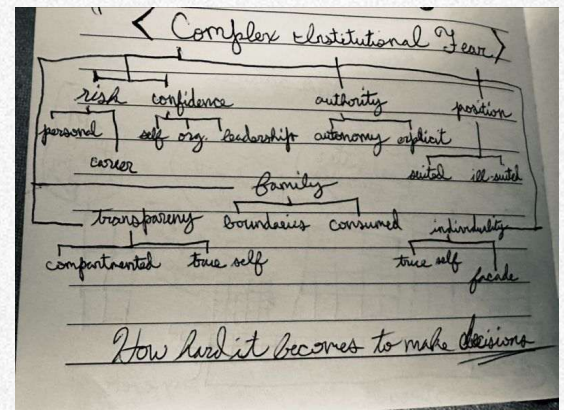 < Complex Institutional Fear >
risk confidence authority position
personal self org. leadership autonomy explicit
career
suited ill-suited
family
transparency boundaries consumed individuality
compartmented true self true self
facade
How hard it becomes to make decisions